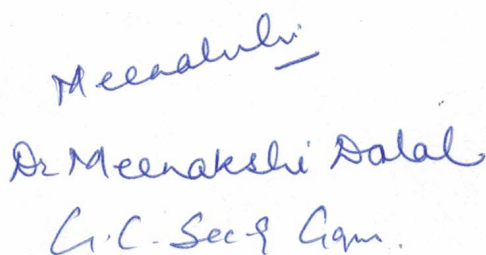 Meenakshi
Dr Meenakshi Dalal
G.C. Sec 9 Ggm.